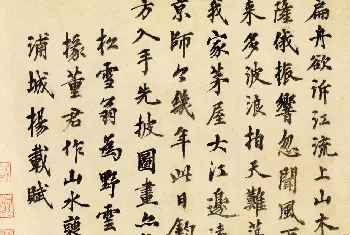 扁舟欲泝江流上山木
隆俄振響忽聞風雨
來多波浪拍天難
我家茅屋大江邊
京師今幾年此日
方入手先披圖畫
松雪翁為野雲
掾董君作山水
浦城楊載賦